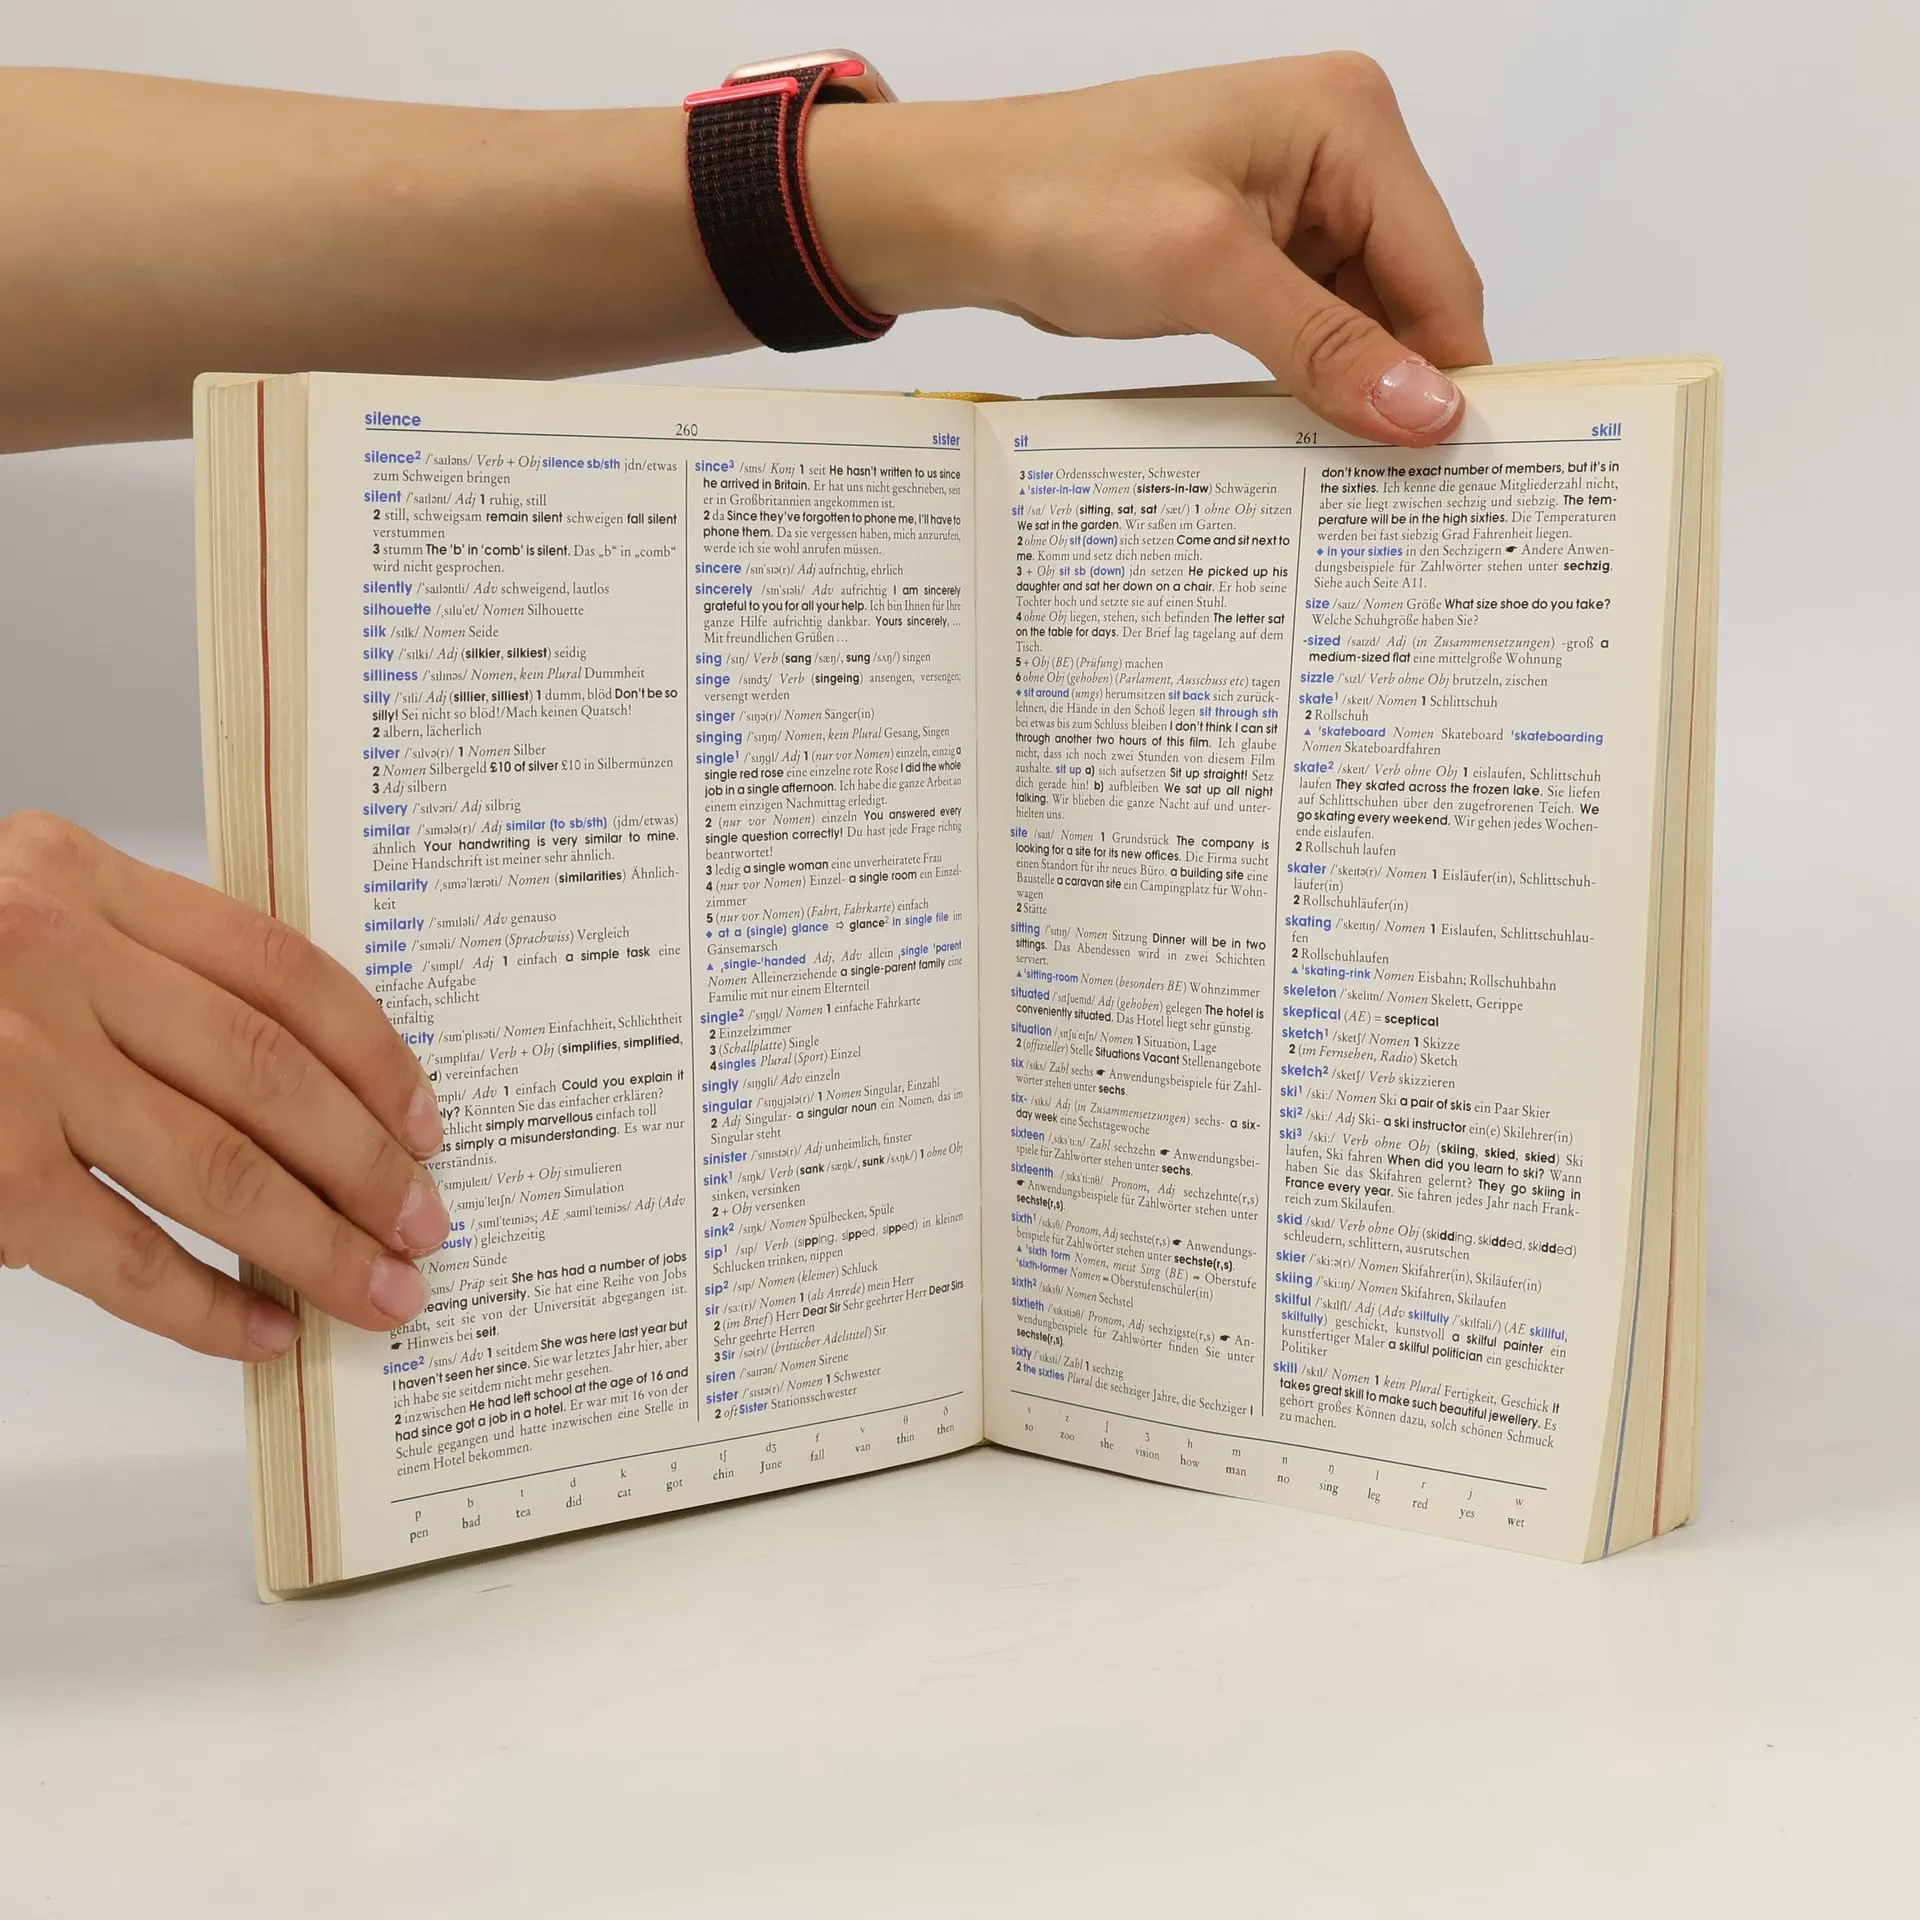 silence
260
sister
silence² /ˈsaɪləns/ Verb + Obj silence sb/sth jdn/etwas
zum Schweigen bringen
silent /ˈsaɪlənt/ Adj 1 ruhig, still
2 still, schweigsam remain silent schweigen fall silent
verstummen
3 stumm The 'b' in 'comb' is silent. Das „b“ in „comb“
wird nicht gesprochen.
silently /ˈsaɪləntli/ Adv schweigend, lautlos
silhouette /ˌsɪluˈet/ Nomen Silhouette
silk /sɪlk/ Nomen Seide
silky /ˈsɪlki/ Adj (silkier, silkiest) seidig
silliness /ˈsɪlinəs/ Nomen, kein Plural Dummheit
silly /ˈsɪli/ Adj (sillier, silliest) 1 dumm, blöd Don't be so
silly! Sei nicht so blöd!/Mach keinen Quatsch!
2 albern, lächerlich
silver /ˈsɪlvə(r)/ 1 Nomen Silber
2 Nomen Silbergeld £10 of silver £10 in Silbermünzen
3 Adj silbern
silvery /ˈsɪlvəri/ Adj silbrig
similar /ˈsɪmələ(r)/ Adj similar (to sb/sth) (jdm/etwas)
ähnlich Your handwriting is very similar to mine.
Deine Handschrift ist meiner sehr ähnlich.
similarity /ˌsɪməˈlærəti/ Nomen (similarities) Ähnlich-
keit
similarly /ˈsɪmɪləli/ Adv genauso
simile /ˈsɪməli/ Nomen (Sprachwiss) Vergleich
simple /ˈsɪmpl/ Adj 1 einfach a simple task eine
einfache Aufgabe
2 einfach, schlicht
einfältig
licity /sɪmˈplɪsəti/ Nomen Einfachheit, Schlichtheit
/ˈsɪmplɪfaɪ/ Verb + Obj (simplifies, simplified,
d) vereinfachen
mpli/ Adv 1 einfach Could you explain it
ly? Könnten Sie das einfacher erklären?
chlicht simply marvellous einfach toll
as simply a misunderstanding. Es war nur
verständnis.
/ˈsɪmjuleɪt/ Verb + Obj simulieren
/ˌsɪmjuˈleɪʃn/ Nomen Simulation
us /ˌsɪmlˈteɪniəs; AE ˌsaɪmlˈteɪniəs/ Adj (Adv
ously) gleichzeitig
/ Nomen Sünde
sɪns/ Präp seit She has had a number of jobs
leaving university. Sie hat eine Reihe von Jobs
gehabt, seit sie von der Universität abgegangen ist.
☛ Hinweis bei seit.
since² /sɪns/ Adv 1 seitdem She was here last year but
I haven't seen her since. Sie war letztes Jahr hier, aber
ich habe sie seitdem nicht mehr gesehen.
2 inzwischen He had left school at the age of 16 and
had since got a job in a hotel. Er war mit 16 von der
Schule gegangen und hatte inzwischen eine Stelle in
einem Hotel bekommen.
since³ /sɪns/ Konj 1 seit He hasn't written to us since
he arrived in Britain. Er hat uns nicht geschrieben, seit
er in Großbritannien angekommen ist.
2 da Since they've forgotten to phone me, I'll have to
phone them. Da sie vergessen haben, mich anzurufen,
werde ich sie wohl anrufen müssen.
sincere /sɪnˈsɪə(r)/ Adj aufrichtig, ehrlich
sincerely /sɪnˈsɪəli/ Adv aufrichtig I am sincerely
grateful to you for all your help. Ich bin Ihnen für Ihre
ganze Hilfe aufrichtig dankbar. Yours sincerely, ...
Mit freundlichen Grüßen ...
sing /sɪŋ/ Verb (sang /sæŋ/, sung /sʌŋ/) singen
singe /sɪndʒ/ Verb (singeing) ansengen, versengen;
versengt werden
singer /ˈsɪŋə(r)/ Nomen Sänger(in)
singing /ˈsɪŋɪŋ/ Nomen, kein Plural Gesang, Singen
single¹ /ˈsɪŋgl/ Adj 1 (nur vor Nomen) einzeln, einzig a
single red rose eine einzelne rote Rose I did the whole
job in a single afternoon. Ich habe die ganze Arbeit an
einem einzigen Nachmittag erledigt.
2 (nur vor Nomen) einzeln You answered every
single question correctly! Du hast jede Frage richtig
beantwortet!
3 ledig a single woman eine unverheiratete Frau
4 (nur vor Nomen) Einzel- a single room ein Einzel-
zimmer
5 (nur vor Nomen) (Fahrt, Fahrkarte) einfach
◆ at a (single) glance ⇨ glance² in single file im
Gänsemarsch
▲ ˌsingle-ˈhanded Adj, Adv allein ˌsingle ˈparent
Nomen Alleinerziehende a single-parent family eine
Familie mit nur einem Elternteil
single² /ˈsɪŋgl/ Nomen 1 einfache Fahrkarte
2 Einzelzimmer
3 (Schallplatte) Single
4 singles Plural (Sport) Einzel
singly /ˈsɪŋgli/ Adv einzeln
singular /ˈsɪŋgjələ(r)/ 1 Nomen Singular, Einzahl
2 Adj Singular- a singular noun ein Nomen, das im
Singular steht
sinister /ˈsɪnɪstə(r)/ Adj unheimlich, finster
sink¹ /sɪŋk/ Verb (sank /sæŋk/, sunk /sʌŋk/) 1 ohne Obj
sinken, versinken
2 + Obj versenken
sink² /sɪŋk/ Nomen Spülbecken, Spüle
sip¹ /sɪp/ Verb (sipping, sipped, sipped) in kleinen
Schlucken trinken, nippen
sip² /sɪp/ Nomen (kleiner) Schluck
sir /sɜ:(r)/ Nomen 1 (als Anrede) mein Herr
2 (im Brief) Herr Dear Sir Sehr geehrter Herr Dear Sirs
Sehr geehrte Herren
3 Sir /sə(r)/ (britischer Adelstitel) Sir
siren /ˈsaɪrən/ Nomen Sirene
sister /ˈsɪstə(r)/ Nomen 1 Schwester
2 oft Sister Stationsschwester
p b t d k g tʃ dʒ f v θ ð
pen bad tea did cat got chin June fall van thin then
sit
261
skill
3 Sister Ordensschwester, Schwester
▲ ˈsister-in-law Nomen (sisters-in-law) Schwägerin
sit /sɪt/ Verb (sitting, sat, sat /sæt/) 1 ohne Obj sitzen
We sat in the garden. Wir saßen im Garten.
2 ohne Obj sit (down) sich setzen Come and sit next to
me. Komm und setz dich neben mich.
3 + Obj sit sb (down) jdn setzen He picked up his
daughter and sat her down on a chair. Er hob seine
Tochter hoch und setzte sie auf einen Stuhl.
4 ohne Obj liegen, stehen, sich befinden The letter sat
on the table for days. Der Brief lag tagelang auf dem
Tisch.
5 + Obj (BE) (Prüfung) machen
6 ohne Obj (gehoben) (Parlament, Ausschuss etc) tagen
◆ sit around (umgs) herumsitzen sit back sich zurück-
lehnen, die Hände in den Schoß legen sit through sth
bei etwas bis zum Schluss bleiben I don't think I can sit
through another two hours of this film. Ich glaube
nicht, dass ich noch zwei Stunden von diesem Film
aushalte. sit up a) sich aufsetzen Sit up straight! Setz
dich gerade hin! b) aufbleiben We sat up all night
talking. Wir blieben die ganze Nacht auf und unter-
hielten uns.
site /saɪt/ Nomen 1 Grundstück The company is
looking for a site for its new offices. Die Firma sucht
einen Standort für ihr neues Büro. a building site eine
Baustelle a caravan site ein Campingplatz für Wohn-
wagen
2 Stätte
sitting /ˈsɪtɪŋ/ Nomen Sitzung Dinner will be in two
sittings. Das Abendessen wird in zwei Schichten
serviert.
▲ ˈsitting-room Nomen (besonders BE) Wohnzimmer
situated /ˈsɪtʃueɪtɪd/ Adj (gehoben) gelegen The hotel is
conveniently situated. Das Hotel liegt sehr günstig.
situation /ˌsɪtʃuˈeɪʃn/ Nomen 1 Situation, Lage
2 (offizieller) Stelle Situations Vacant Stellenangebote
six /sɪks/ Zahl sechs ☛ Anwendungsbeispiele für Zahl-
wörter stehen unter sechs.
six- /sɪks/ Adj (in Zusammensetzungen) sechs- a six-
day week eine Sechstagewoche
sixteen /ˌsɪksˈti:n/ Zahl sechzehn ☛ Anwendungsbei-
spiele für Zahlwörter stehen unter sechs.
sixteenth /ˌsɪksˈti:nθ/ Pronom, Adj sechzehnte(r,s)
☛ Anwendungsbeispiele für Zahlwörter stehen unter
sechste(r,s).
sixth¹ /sɪksθ/ Pronom, Adj sechste(r,s) ☛ Anwendungs-
beispiele für Zahlwörter stehen unter sechste(r,s).
▲ ˈsixth form Nomen, meist Sing (BE) ≈ Oberstufe
ˈsixth-former Nomen ≈ Oberstufenschüler(in)
sixth² /sɪksθ/ Nomen Sechstel
sixtieth /ˈsɪkstiəθ/ Pronom, Adj sechzigste(r,s) ☛ An-
wendungbeispiele für Zahlwörter finden Sie unter
sechste(r,s).
sixty /ˈsɪksti/ Zahl 1 sechzig
2 the sixties Plural die sechziger Jahre, die Sechziger I
don't know the exact number of members, but it's in
the sixties. Ich kenne die genaue Mitgliederzahl nicht,
aber sie liegt zwischen sechzig und siebzig. The tem-
perature will be in the high sixties. Die Temperaturen
werden bei fast siebzig Grad Fahrenheit liegen.
◆ in your sixties in den Sechzigern ☛ Andere Anwen-
dungsbeispiele für Zahlwörter stehen unter sechzig.
Siehe auch Seite A11.
size /saɪz/ Nomen Größe What size shoe do you take?
Welche Schuhgröße haben Sie?
-sized /saɪzd/ Adj (in Zusammensetzungen) -groß a
medium-sized flat eine mittelgroße Wohnung
sizzle /ˈsɪzl/ Verb ohne Obj brutzeln, zischen
skate¹ /skeɪt/ Nomen 1 Schlittschuh
2 Rollschuh
▲ ˈskateboard Nomen Skateboard ˈskateboarding
Nomen Skateboardfahren
skate² /skeɪt/ Verb ohne Obj 1 eislaufen, Schlittschuh
laufen They skated across the frozen lake. Sie liefen
auf Schlittschuhen über den zugefrorenen Teich. We
go skating every weekend. Wir gehen jedes Wochen-
ende eislaufen.
2 Rollschuh laufen
skater /ˈskeɪtə(r)/ Nomen 1 Eisläufer(in), Schlittschuh-
läufer(in)
2 Rollschuhläufer(in)
skating /ˈskeɪtɪŋ/ Nomen 1 Eislaufen, Schlittschuhlau-
fen
2 Rollschuhlaufen
▲ ˈskating-rink Nomen Eisbahn; Rollschuhbahn
skeleton /ˈskelɪtn/ Nomen Skelett, Gerippe
skeptical (AE) = sceptical
sketch¹ /sketʃ/ Nomen 1 Skizze
2 (im Fernsehen, Radio) Sketch
sketch² /sketʃ/ Verb skizzieren
ski¹ /ski:/ Nomen Ski a pair of skis ein Paar Skier
ski² /ski:/ Adj Ski- a ski instructor ein(e) Skilehrer(in)
ski³ /ski:/ Verb ohne Obj (skiing, skied, skied) Ski
laufen, Ski fahren When did you learn to ski? Wann
haben Sie das Skifahren gelernt? They go skiing in
France every year. Sie fahren jedes Jahr nach Frank-
reich zum Skilaufen.
skid /skɪd/ Verb ohne Obj (skidding, skidded, skidded)
schleudern, schlittern, ausrutschen
skier /ˈski:ə(r)/ Nomen Skifahrer(in), Skiläufer(in)
skiing /ˈski:ɪŋ/ Nomen Skifahren, Skilaufen
skilful /ˈskɪlfl/ Adj (Adv skilfully /ˈskɪlfəli/) (AE skillful,
skillfully) geschickt, kunstvoll a skilful painter ein
kunstfertiger Maler a skilful politician ein geschickter
Politiker
skill /skɪl/ Nomen 1 kein Plural Fertigkeit, Geschick It
takes great skill to make such beautiful jewellery. Es
gehört großes Können dazu, solch schönen Schmuck
zu machen.
s z ʃ ʒ h m n ŋ l r j w
so zoo she vision how man no sing leg red yes wet